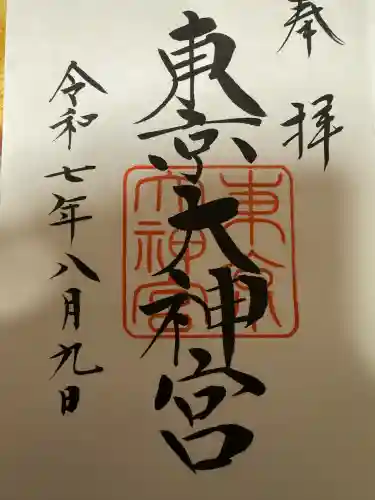 奉拝
東京大神宮
東京大神宮
令和七年八月九日